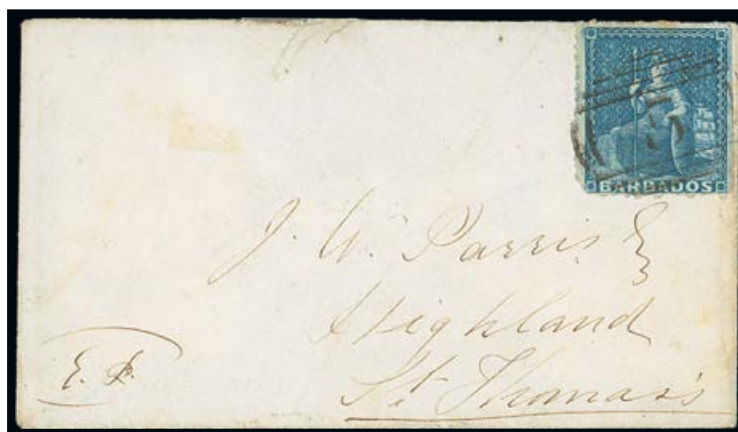 BARBADOS
5
J. W. Parris Esq
Highland
St. Thomas's